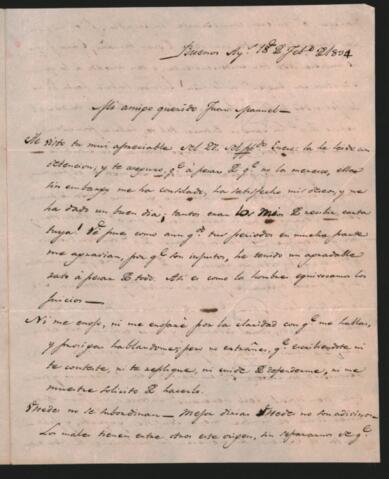 Buenos Ay.s 18 de Feb.o de 1834
Mi amigo querido Juan Manuel —
He visto tu mui apreciable del 22. del pp.do Enero: la he leido con
detencion, y te aseguro, q.e á pesar de q.e no la merecia, ella
sin embargo me ha consolado, ha satisfecho mis deseos, y me
ha dado un buen dia; tantos eran los mios de recibir carta
tuya! pues como aun q.e tus periodos en mucha parte
me agravian, por q.e son injustos, he tenido un agradable
rato á pesar de todo. Asi es como los hombres equivocamos los
juicios —
Ni me enojo, ni me enojaré por la claridad con q.e me hablas,
y prosigas hablandome; pero no extrañes, q.e escribiendote ni
te conteste, ni te replique, ni cuide de defenderme, ni me
muestre solicito de hacerlo.
Ustedes no se subordinan — Mejor dirias Ustedes no son adivinos —
Los males tienen entre otros este origen, sin separarnos de q.e